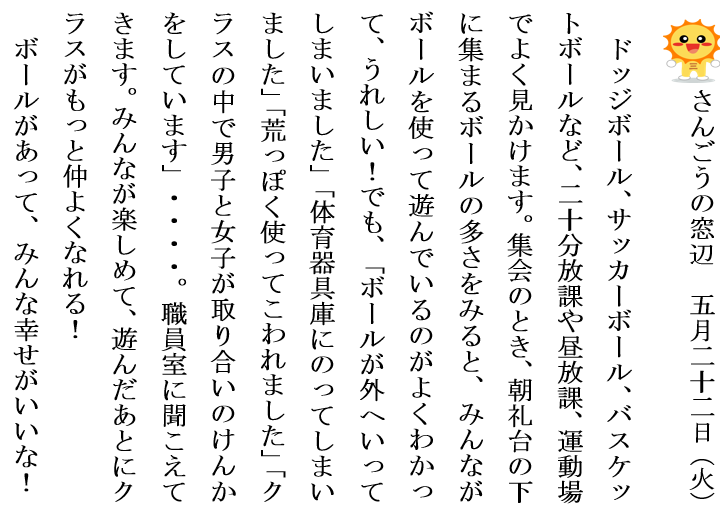 さんごうの窓辺　五月二十二日（火）
ドッジボール、サッカーボール、バスケッ
トボールなど、二十分放課や昼放課、運動場
でよく見かけます。集会のとき、朝礼台の下
に集まるボールの多さをみると、みんなが
ボールを使って遊んでいるのがよくわかっ
て、うれしい！でも、「ボールが外へいって
しまいました」「体育器具庫にのってしまい
ました」「荒っぽく使ってこわれました」「ク
ラスの中で男子と女子が取り合いのけんか
をしています」・・・・。職員室に聞こえて
きます。みんなが楽しめて、遊んだあとにク
ラスがもっと仲よくなれる！
ボールがあって、みんな幸せがいいな！